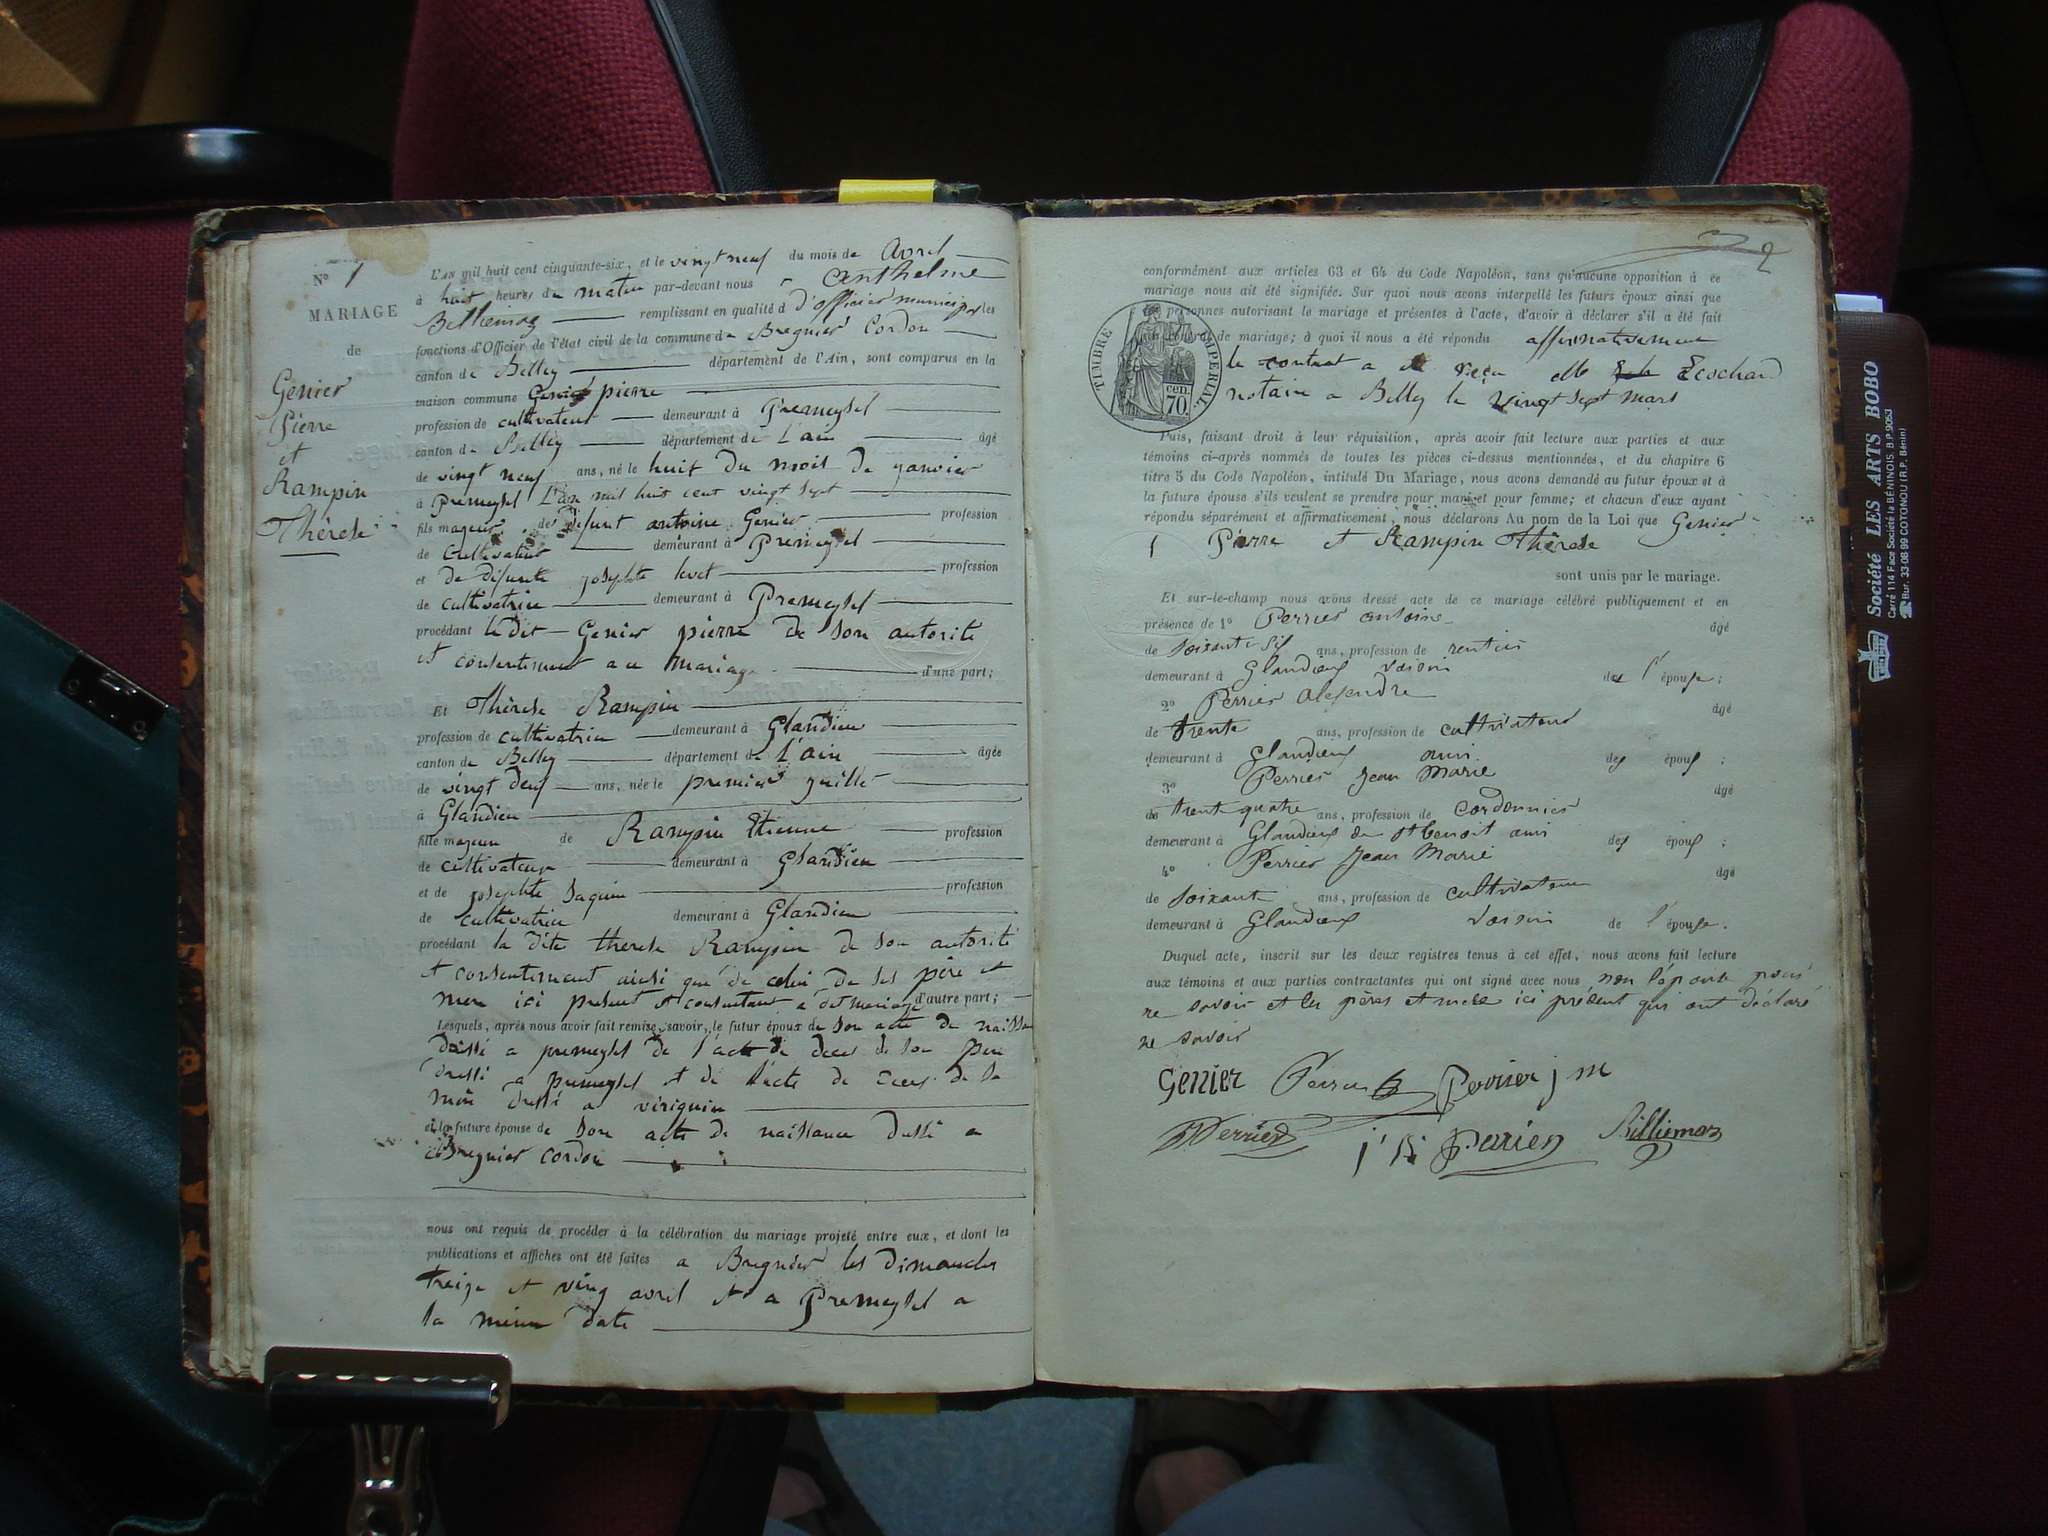 N° 1
MARIAGE
de
Genier
Pierre
et
Rampin
Thérèse
L'AN mil huit cent cinquante-six, et le vingt neuf du mois de Avril
à huit heures du matin par-devant nous Anthelme
Billiemaz remplissant en qualité d d'officier municipal les
fonctions d'Officier de l'état civil de la commune de Bregnier Cordon
canton de Belley département de l'Ain, sont comparus en la
maison commune Genier pierre
profession de cultivateur demeurant à Premeysel
canton de Belley département de L'ain âgé
de vingt neuf ans, né le huit du mois de janvier
à premeysel L'an mil huit cent vingt sept
fils majeur de défunt antoine Genier profession
de cultivateur demeurant à Premeysel
et de défunte josephte levet profession
de cultivatrice demeurant à Premeysel
procédant le dit Genier pierre de son autorité
et consentement au mariage d'une part;
Et Thérèse Rampin
profession de cultivatrice demeurant à Glandieu
canton de Belley département de L'ain âgée
de vingt deux ans, née le premier juillet
à Glandieu
fille majeur de Rampin Etienne profession
de cultivateur demeurant à Glandieu
et de josephte Saquin profession
de cultivatrice demeurant à Glandieu
procédant la dite therese Rampin de son autorité
et consentement ainsi que de celui de ses père et
mere ici présent et consentant a dit mariage d'autre part;
Lesquels, après nous avoir fait remise, savoir, le futur époux de son acte de naissan
dressé a premeysel de l'acte de deces de son pere
dressé a premeysel et de l'acte de deces de sa
mère dressé a virignin
et la future épouse de son acte de naissance dressé a
Bregnier cordon
nous ont requis de procéder à la célébration du mariage projeté entre eux, et dont les
publications et affiches ont été faites a Bregnier les dimanches
treize et ving avril et a Premeysel a
la même date
2
conformément aux articles 63 et 64 du Code Napoléon, sans qu'aucune opposition à ce
mariage nous ait été signifiée. Sur quoi nous avons interpellé les futurs époux ainsi que
personnes autorisant le mariage et présentes à l'acte, d'avoir à déclarer s'il a été fait
de mariage; à quoi il nous a été répondu affirmativement
le contrat a été reçu Mtre Teschard
notaire a Belley le vingt sept mars
TIMBRE IMPERIAL.
70 cen.
Puis, faisant droit à leur réquisition, après avoir fait lecture aux parties et aux
témoins ci-après nommés de toutes les pièces ci-dessus mentionnées, et du chapitre 6
titre 5 du Code Napoléon, intitulé Du Mariage, nous avons demandé au futur époux et à
la future épouse s'ils veulent se prendre pour mari et pour femme; et chacun d'eux ayant
répondu séparément et affirmativement, nous déclarons Au nom de la Loi que Genier
Pierre et Rampin Thérèse
sont unis par le mariage.
Et sur-le-champ nous avons dressé acte de ce mariage célébré publiquement et en
présence de 1° Perrier antoine âgé
de soixante six ans, profession de rentier
demeurant à Glandieux voisin de l'épouse;
2° Perrier Alexandre âgé
de trente ans, profession de cultivateur
demeurant à Glandieux ami des époux;
3° Perrier Jean Marie âgé
de trent quatre ans, profession de cordonnier
demeurant à Glandieux de St benoit ami des époux;
4° Perrier Jean Marie âgé
de soixant ans, profession de cultivateur
demeurant à Glandieux voisin de l'épouse.
Duquel acte, inscrit sur les deux registres tenus à cet effet, nous avons fait lecture
aux témoins et aux parties contractantes qui ont signé avec nous non l'épouse pour
ne savoir et les pères et mere ici présent qui ont déclaré
ne savoir
Genier Perrier Perrier j m
Perrier Perrier Billiemaz
Société LES ARTS BOBO
Carré 114 Face Société la BÉNINOIS. B.P.9053
☎ Bur. 33-08 99 COTONOU (R.P. Bénin)